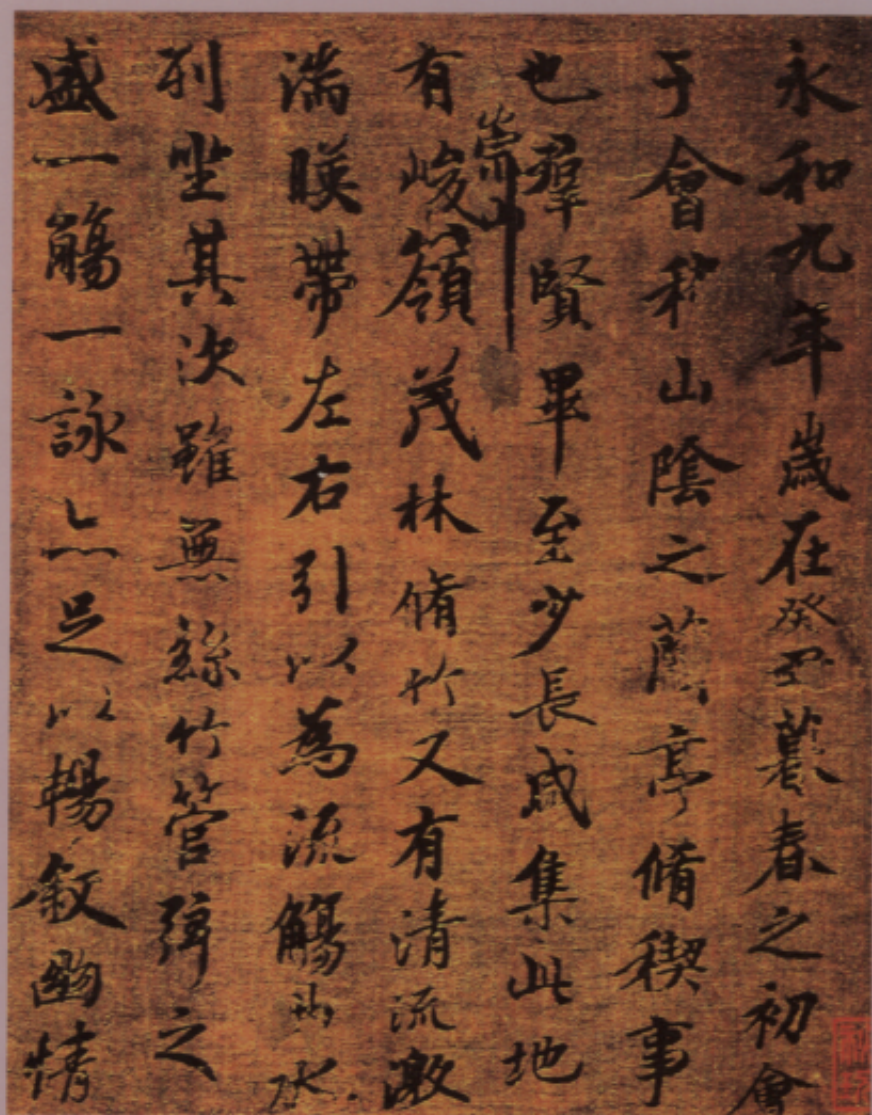 永和九年歲在癸丑暮春之初會
于會稽山陰之蘭亭脩稧事
也羣賢畢至少長咸集此地
有崇山峻嶺茂林脩竹又有清流激
湍暎帶左右引以為流觴曲水
列坐其次雖無絲竹管弦之
盛一觴一詠亦足以暢敘幽情